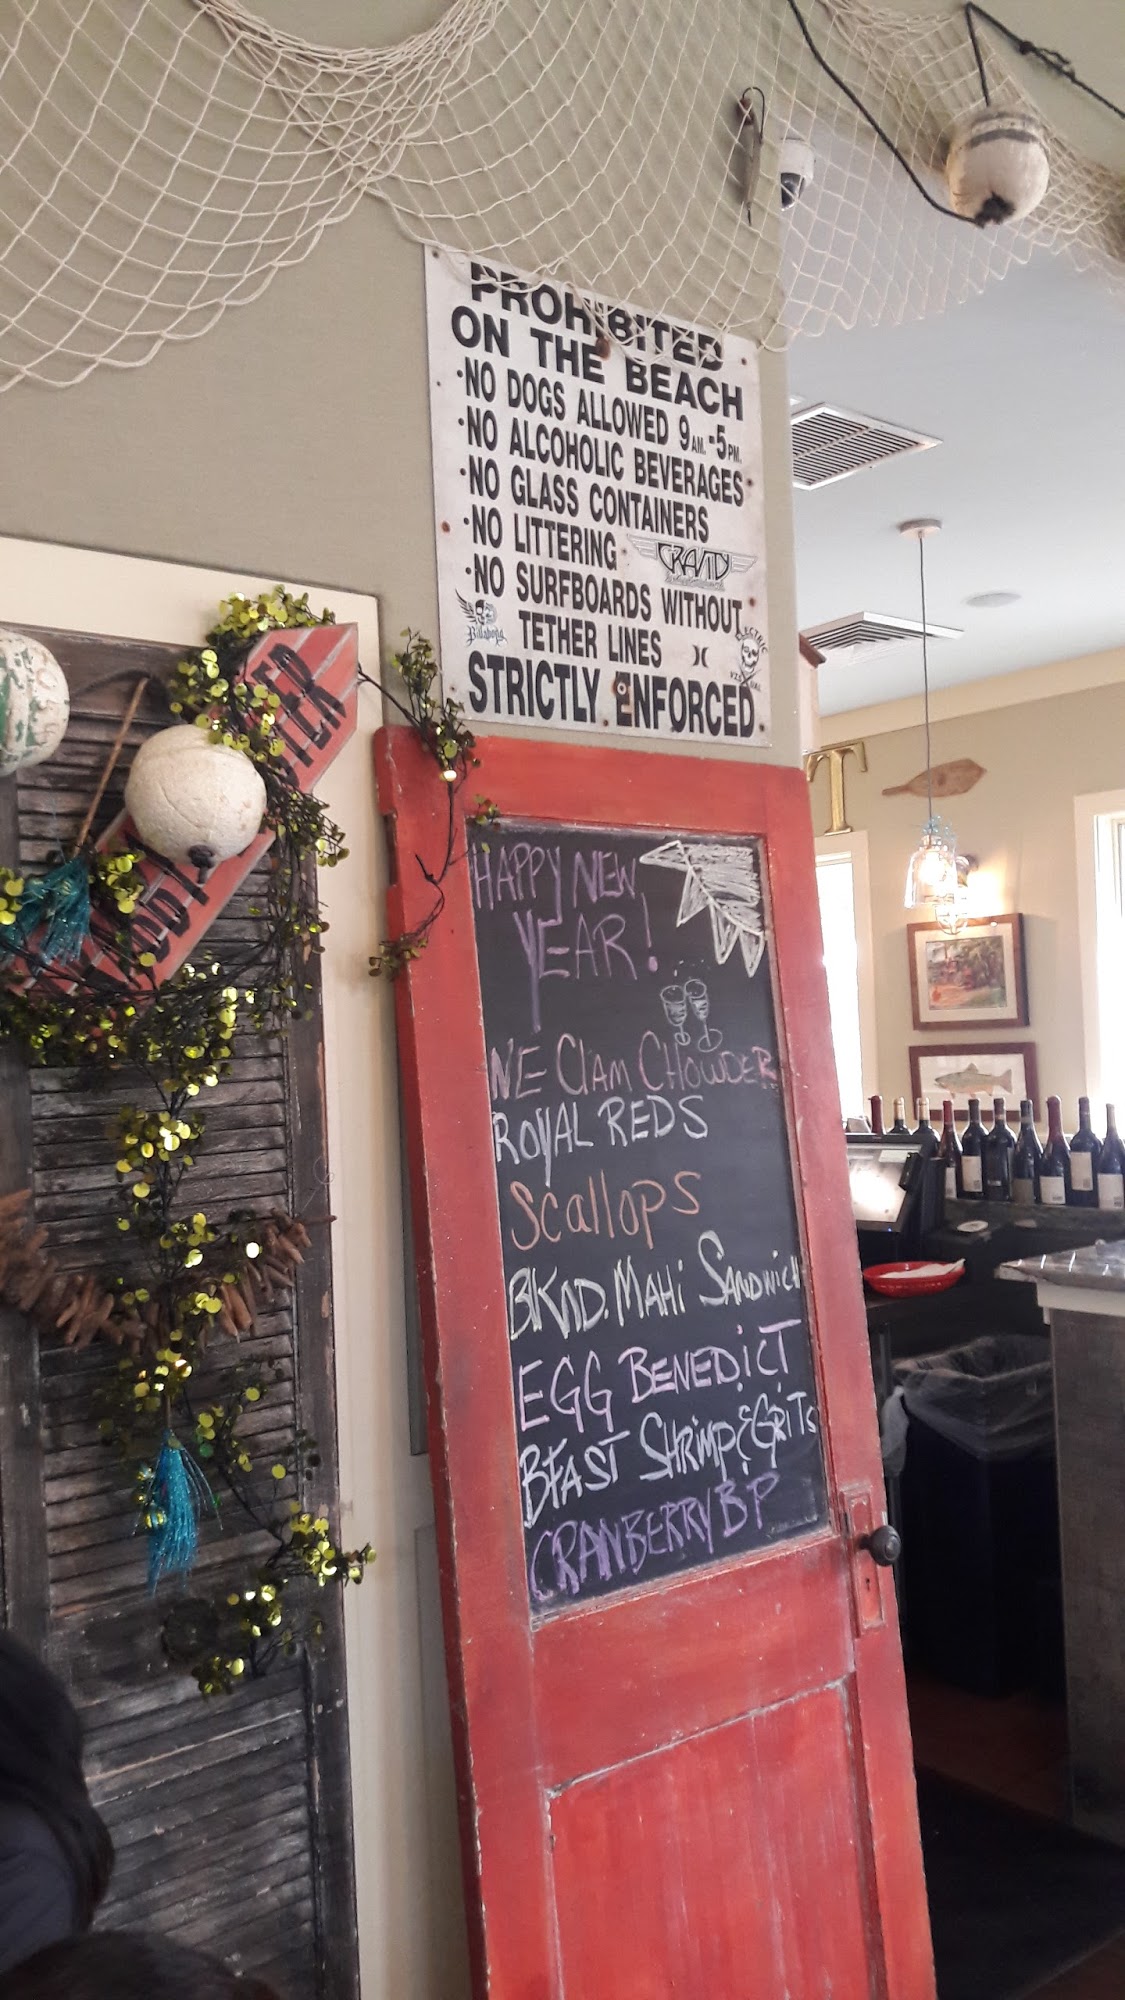 PROHIBITED
ON THE BEACH
·NO DOGS ALLOWED 9AM.-5PM.
·NO ALCOHOLIC BEVERAGES
·NO GLASS CONTAINERS
·NO LITTERING
GRAVITY
·NO SURFBOARDS WITHOUT
TETHER LINES
Billabong
ELECTRIC
STRICTLY ENFORCED
HAPPY NEW
YEAR!
NE Clam CHOWDER
ROyAL REDS
Scallops
BKND. MAHi SANDWICH
EGG BENEDiCT
BFAST SHRIMP & GRiTs
CRANBERRY BP
T